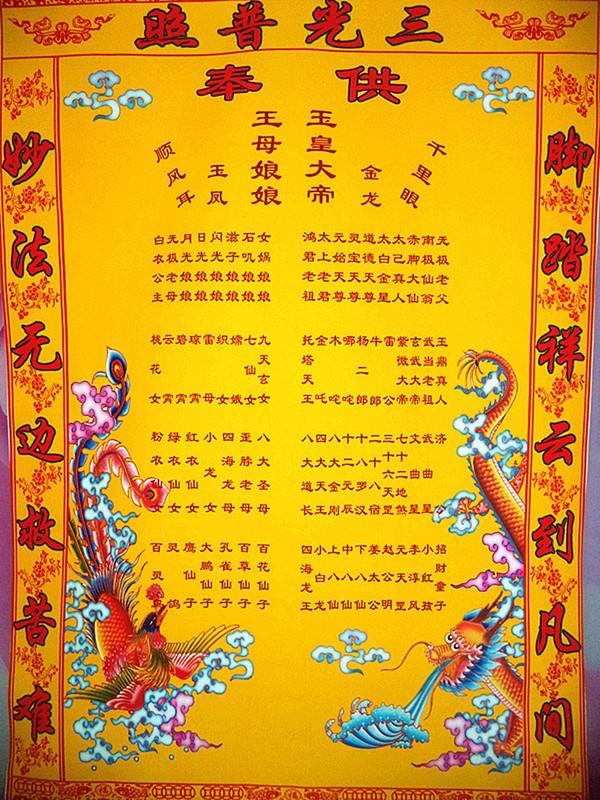 三光普照
供奉
脚踏祥云到凡间
千里眼
金龙
玉皇大帝
王母娘娘
玉凤
顺风耳
无极老父
南极仙翁
赤脚大仙
太己真人
太白金星
道德天尊
灵宝天尊
元始天尊
太上老君
鸿君老祖
女娲娘娘
石叽娘娘
滋子娘娘
闪光娘娘
日光娘娘
月光娘娘
无极老母
白衣公主
玉鼎真人
武当老祖
玄武大帝
紫微大帝
雷公
牛郎
杨二郎
哪咤
木咤
金吒
托塔天王
九天玄女
七仙女
嫦娥
织女
雷母
琼霄
碧霄
云霄
桃花女
济
武曲星
文曲星
七十二地煞
三十六天罡
二十八宿
十八罗汉
十二元辰
八大金刚
四大天王
八大道长
八大圣母
歪脖老母
四海龙母
小龙女
红衣仙女
绿衣仙女
粉衣仙女
招财童子
小红孩
李淳风
元天罡
赵公明
姜太公
下八仙
中八仙
上八仙
小白龙
四海龙王
百花仙子
百草仙子
孔雀仙子
大鹏仙子
鹰仙子
灵鸽
百灵鸟
妙法无边救苦难